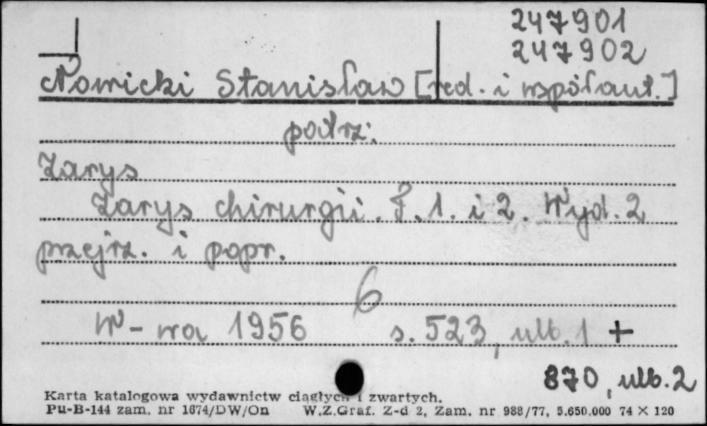 247901
247902
Nowicki Stanisław [red. i współaut.]
patrz:
Zarys
Zarys chirurgii. T. 1. i 2. Wyd. 2
przejrz. i popr.
6
W-wa 1956 s. 523, ulb. 1 +
870, ulb. 2
Karta katalogowa wydawnictw ciągłych i zwartych.
Pu-B-144 zam. nr 1674/DW/On W.Z.Graf. Z-d 2, Zam. nr 988/77, 5.650.000 74 × 120